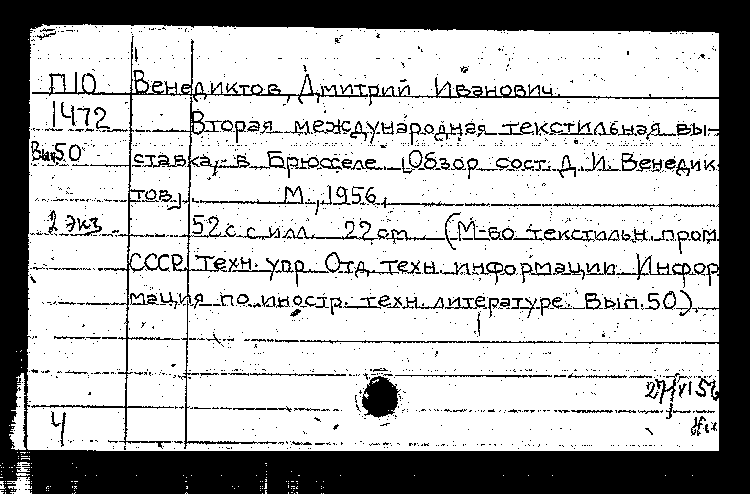 П10 Венедиктов, Дмитрий Иванович.
1472 Вторая международная текстильная вы-
Вып50 ставка, в Брюсселе. [Обзор сост. Д. И. Венедик-
тов]. М., 1956,
2 экз. 52 с. с илл. 22 cm. (М-во текстильн. пром
СССР. Техн. упр. Отд. техн. информации. Инфор
мация по иностр. техн. литературе. Вып. 50).
27/VI 56
4